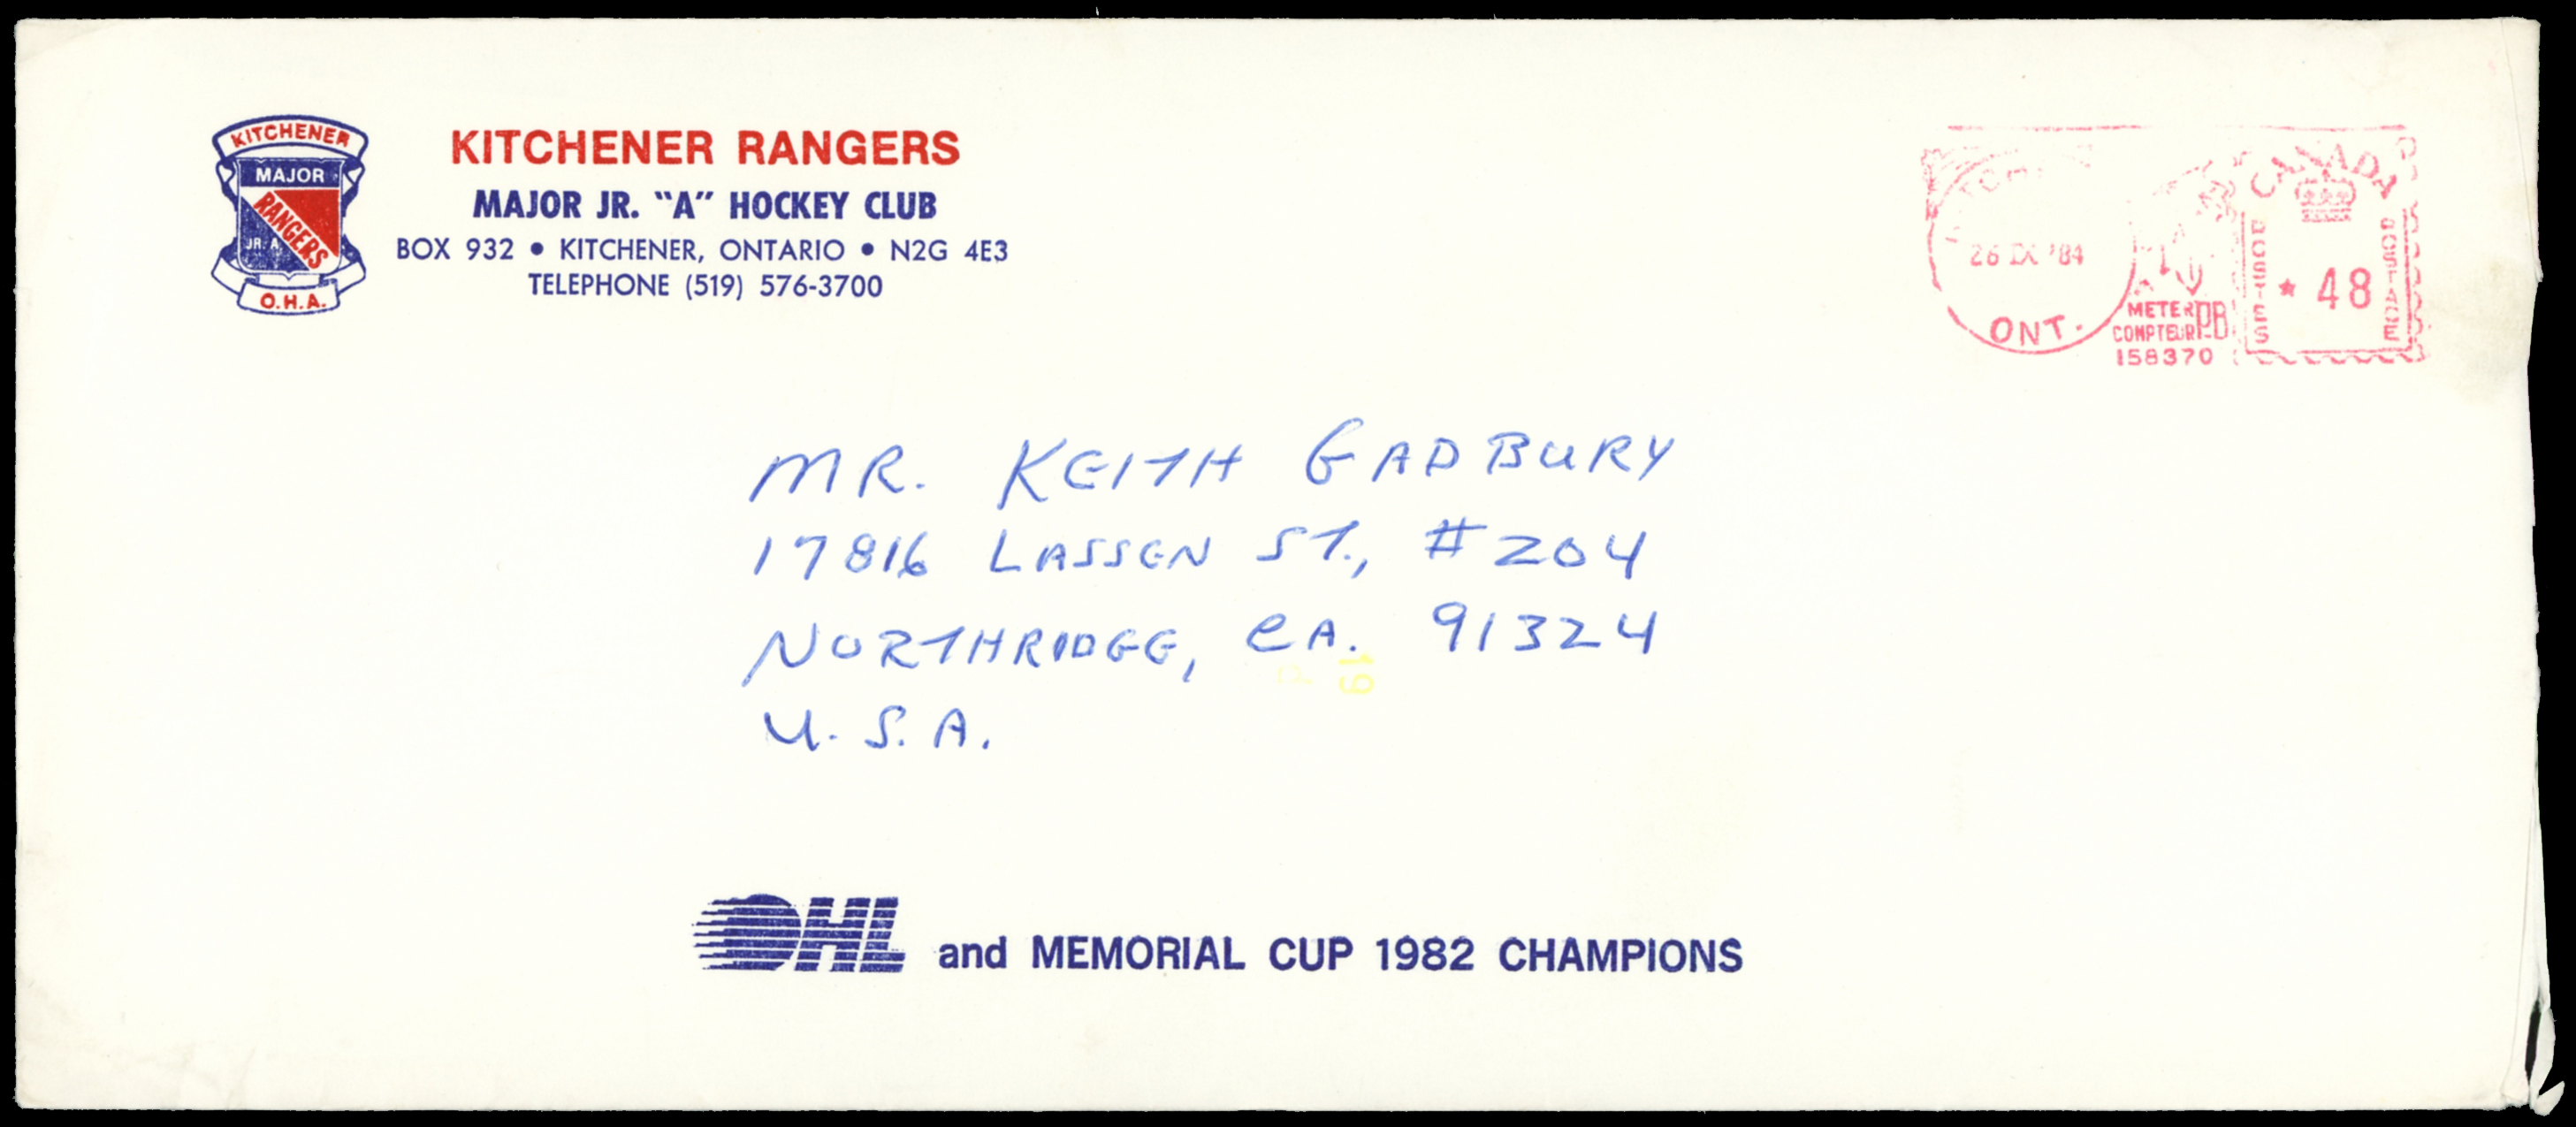 KITCHENER
MAJOR
RANGERS
JR. A.
O.H.A.
KITCHENER RANGERS
MAJOR JR. “A” HOCKEY CLUB
BOX 932 • KITCHENER, ONTARIO • N2G 4E3
TELEPHONE (519) 576-3700
26 IX '84
ONT.
METER
COMPTEUR
PB
158370
CANADA
POSTES
* 48
POSTAGE
MR. KEITH GADBURY
17816 LASSEN ST., #204
NORTHRIDGE, CA. 91324
U.S.A.
19
OHL and MEMORIAL CUP 1982 CHAMPIONS